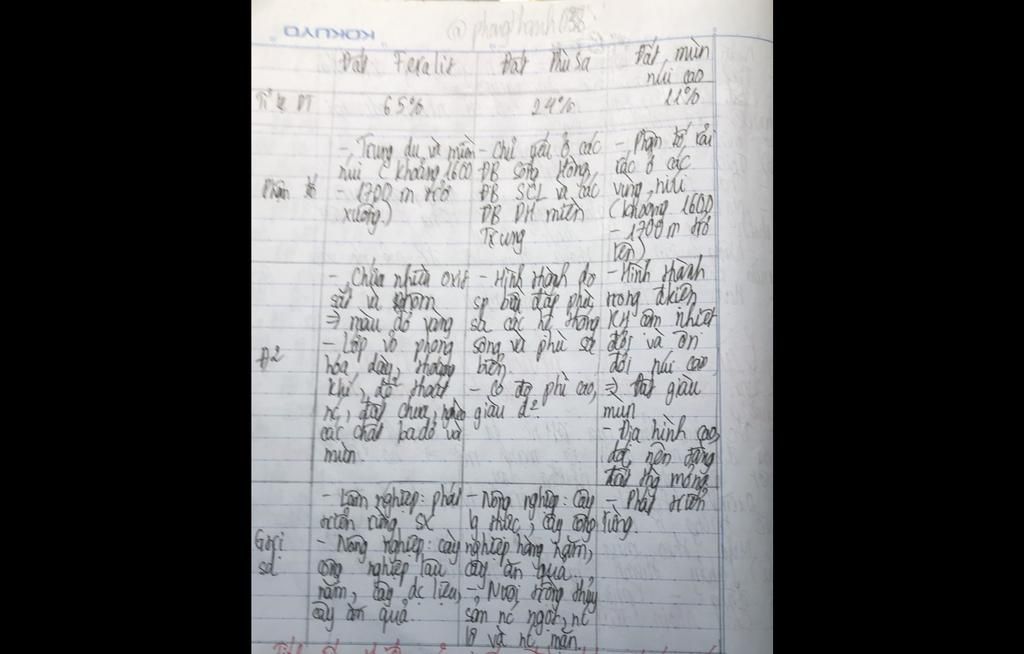 KOKUYO
@phongthanh088
Đất Feralit
Đất Phù Sa
Đất mùn
núi cao
Tỉ lệ DT
65%
24%
11%
Phân bố
- Trung du và miền
núi (khoảng 1600
- 1700 m trở
xuống)
- Chủ yếu ở các
ĐB Sông Hồng,
ĐB SCL và các
ĐB DH miền
Trung
- Phân bố rải
rác ở các
vùng núi
(khoảng 1600
- 1700m trở
lên)
Đ2
- Chứa nhiều oxit
sắt và nhôm
⇒ màu đỏ vàng
- Lớp vỏ phong
hóa dày, thoáng
khí, dễ thoát
nc, đất chua, nghèo
các chất badơ và
mùn.
- Hình thành do
sp bồi đắp phù
sa các hệ thống
sông và phù sa
biển.
- Có độ phì cao,
giàu d2.
- Hình thành
trong đkiện
KH cận nhiệt
đới và ôn
đới núi cao
⇒ Đất giàu
mùn
- Địa hình cao,
dốc, nên tầng
đất thg mỏng
Gtri
sd
- Lâm nghiệp: phát
triển rừng sx
- Nông nghiệp: cây
công nghiệp lâu
năm, cây dc liệu,
cây ăn quả.
- Nông nghiệp: cây
lg thực, cây công
nghiệp hàng năm,
cây ăn quả.
- Nuôi trồng thủy
sản nc ngọt, nc
lợ và nc mặn
- Phát triển
rừng.